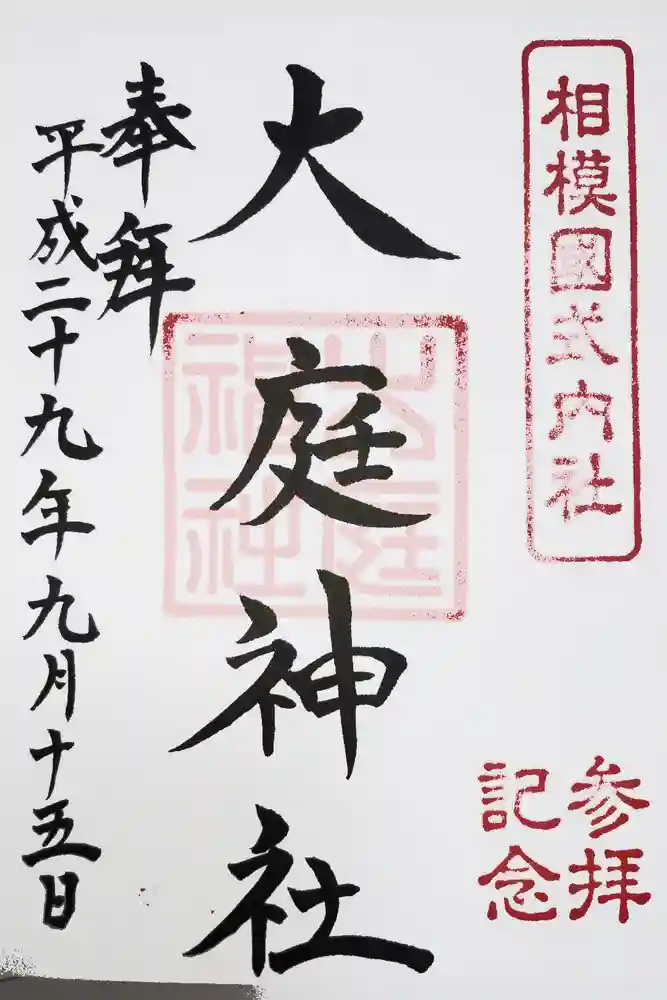 相模國式内社
参拝
記念
大庭神社
大庭
神社
奉拜
平成二十九年九月十五日